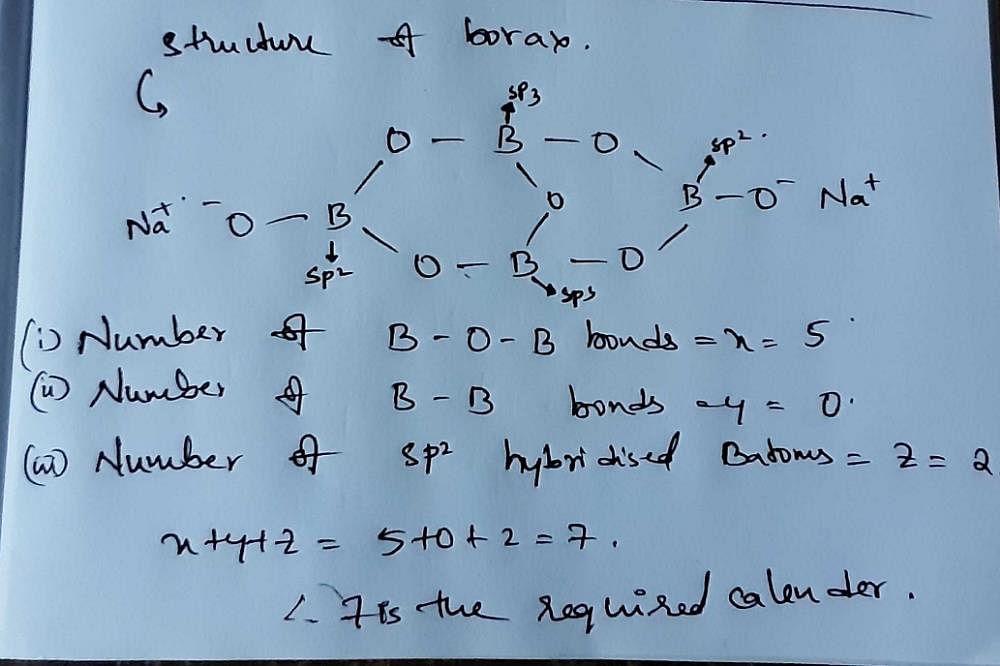 structure of borax.
sp3
O – B – O
sp2.
Na+ -O – B
O
B – O- Na+
sp2
O – B – O
sp3
(i) Number of B – O – B bonds = x = 5
(ii) Number of B – B bonds = y = 0.
(iii) Number of sp2 hybridised B atoms = z = 2
x + y + z = 5 + 0 + 2 = 7.
∴ 7 is the required calender.